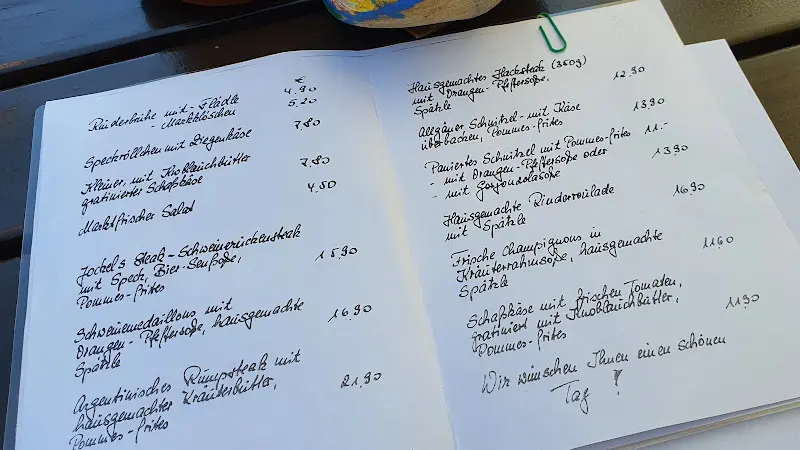 €
Rinderbrühe mit - Flädle 4.90
- Markklöschen 5.20
Speckröllchen mit Ziegenkäse 7,80
Kleiner, mit Knoblauchbutter
gratinierter Schafskäse 7,80
Marktfrischer Salat 4,50
Jockel's Steak - Schweinerückensteak
mit Speck, Bier-Senfsoße,
Pommes-frites 15.90
Schweinemedaillons mit
Orangen-Pfeffersoße, hausgemachte
Spätzle 16.90
Argentinisches Rumpsteak mit
hausgemachter Kräuterbutter,
Pommes-frites 21.90
Hausgemachtes Hacksteak (350g)
mit Orangen-Pfeffersoße,
Spätzle 12.90
Allgäuer Schnitzel - mit Käse
überbacken, Pommes-frites 13,90
Paniertes Schnitzel mit Pommes-frites 11.-
- mit Orangen-Pfeffersoße oder
- mit Gorgonzolasoße 13,90
Hausgemachte Rinderroulade
mit Spätzle 16,90
Frische Champignons in
Kräuterrahmsoße, hausgemachte
Spätzle 11,60
Schafskäse mit frischen Tomaten,
gratiniert mit Knoblauchbutter,
Pommes-frites 11,90
Wir wünschen Ihnen einen schönen
Tag !